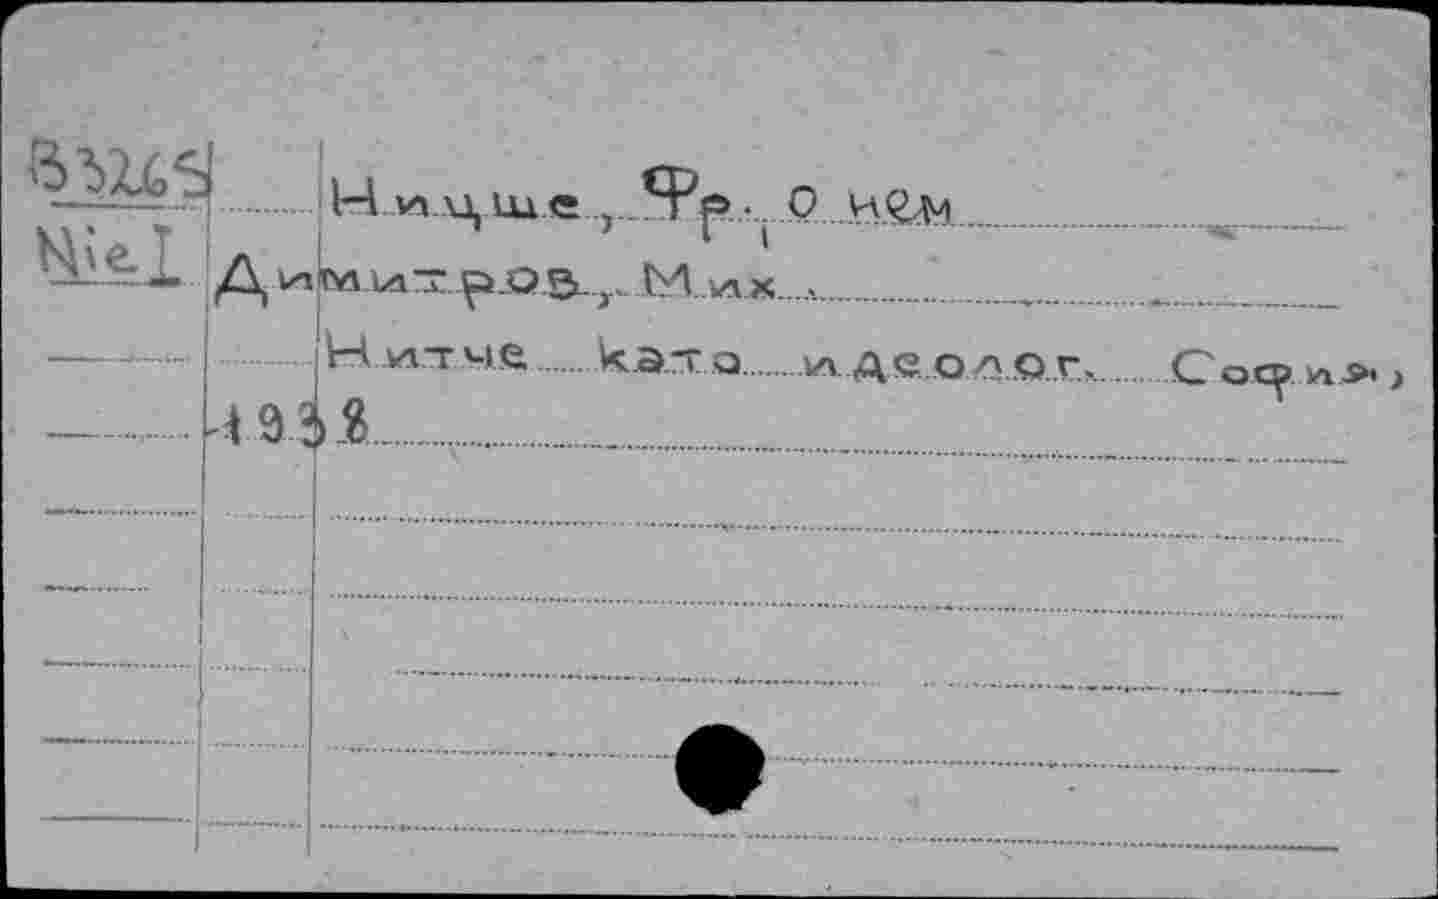 B3265 Ницше, Фр., О нем
NieI Димитров, Мих.
Нитче като идеолог. София,
1938